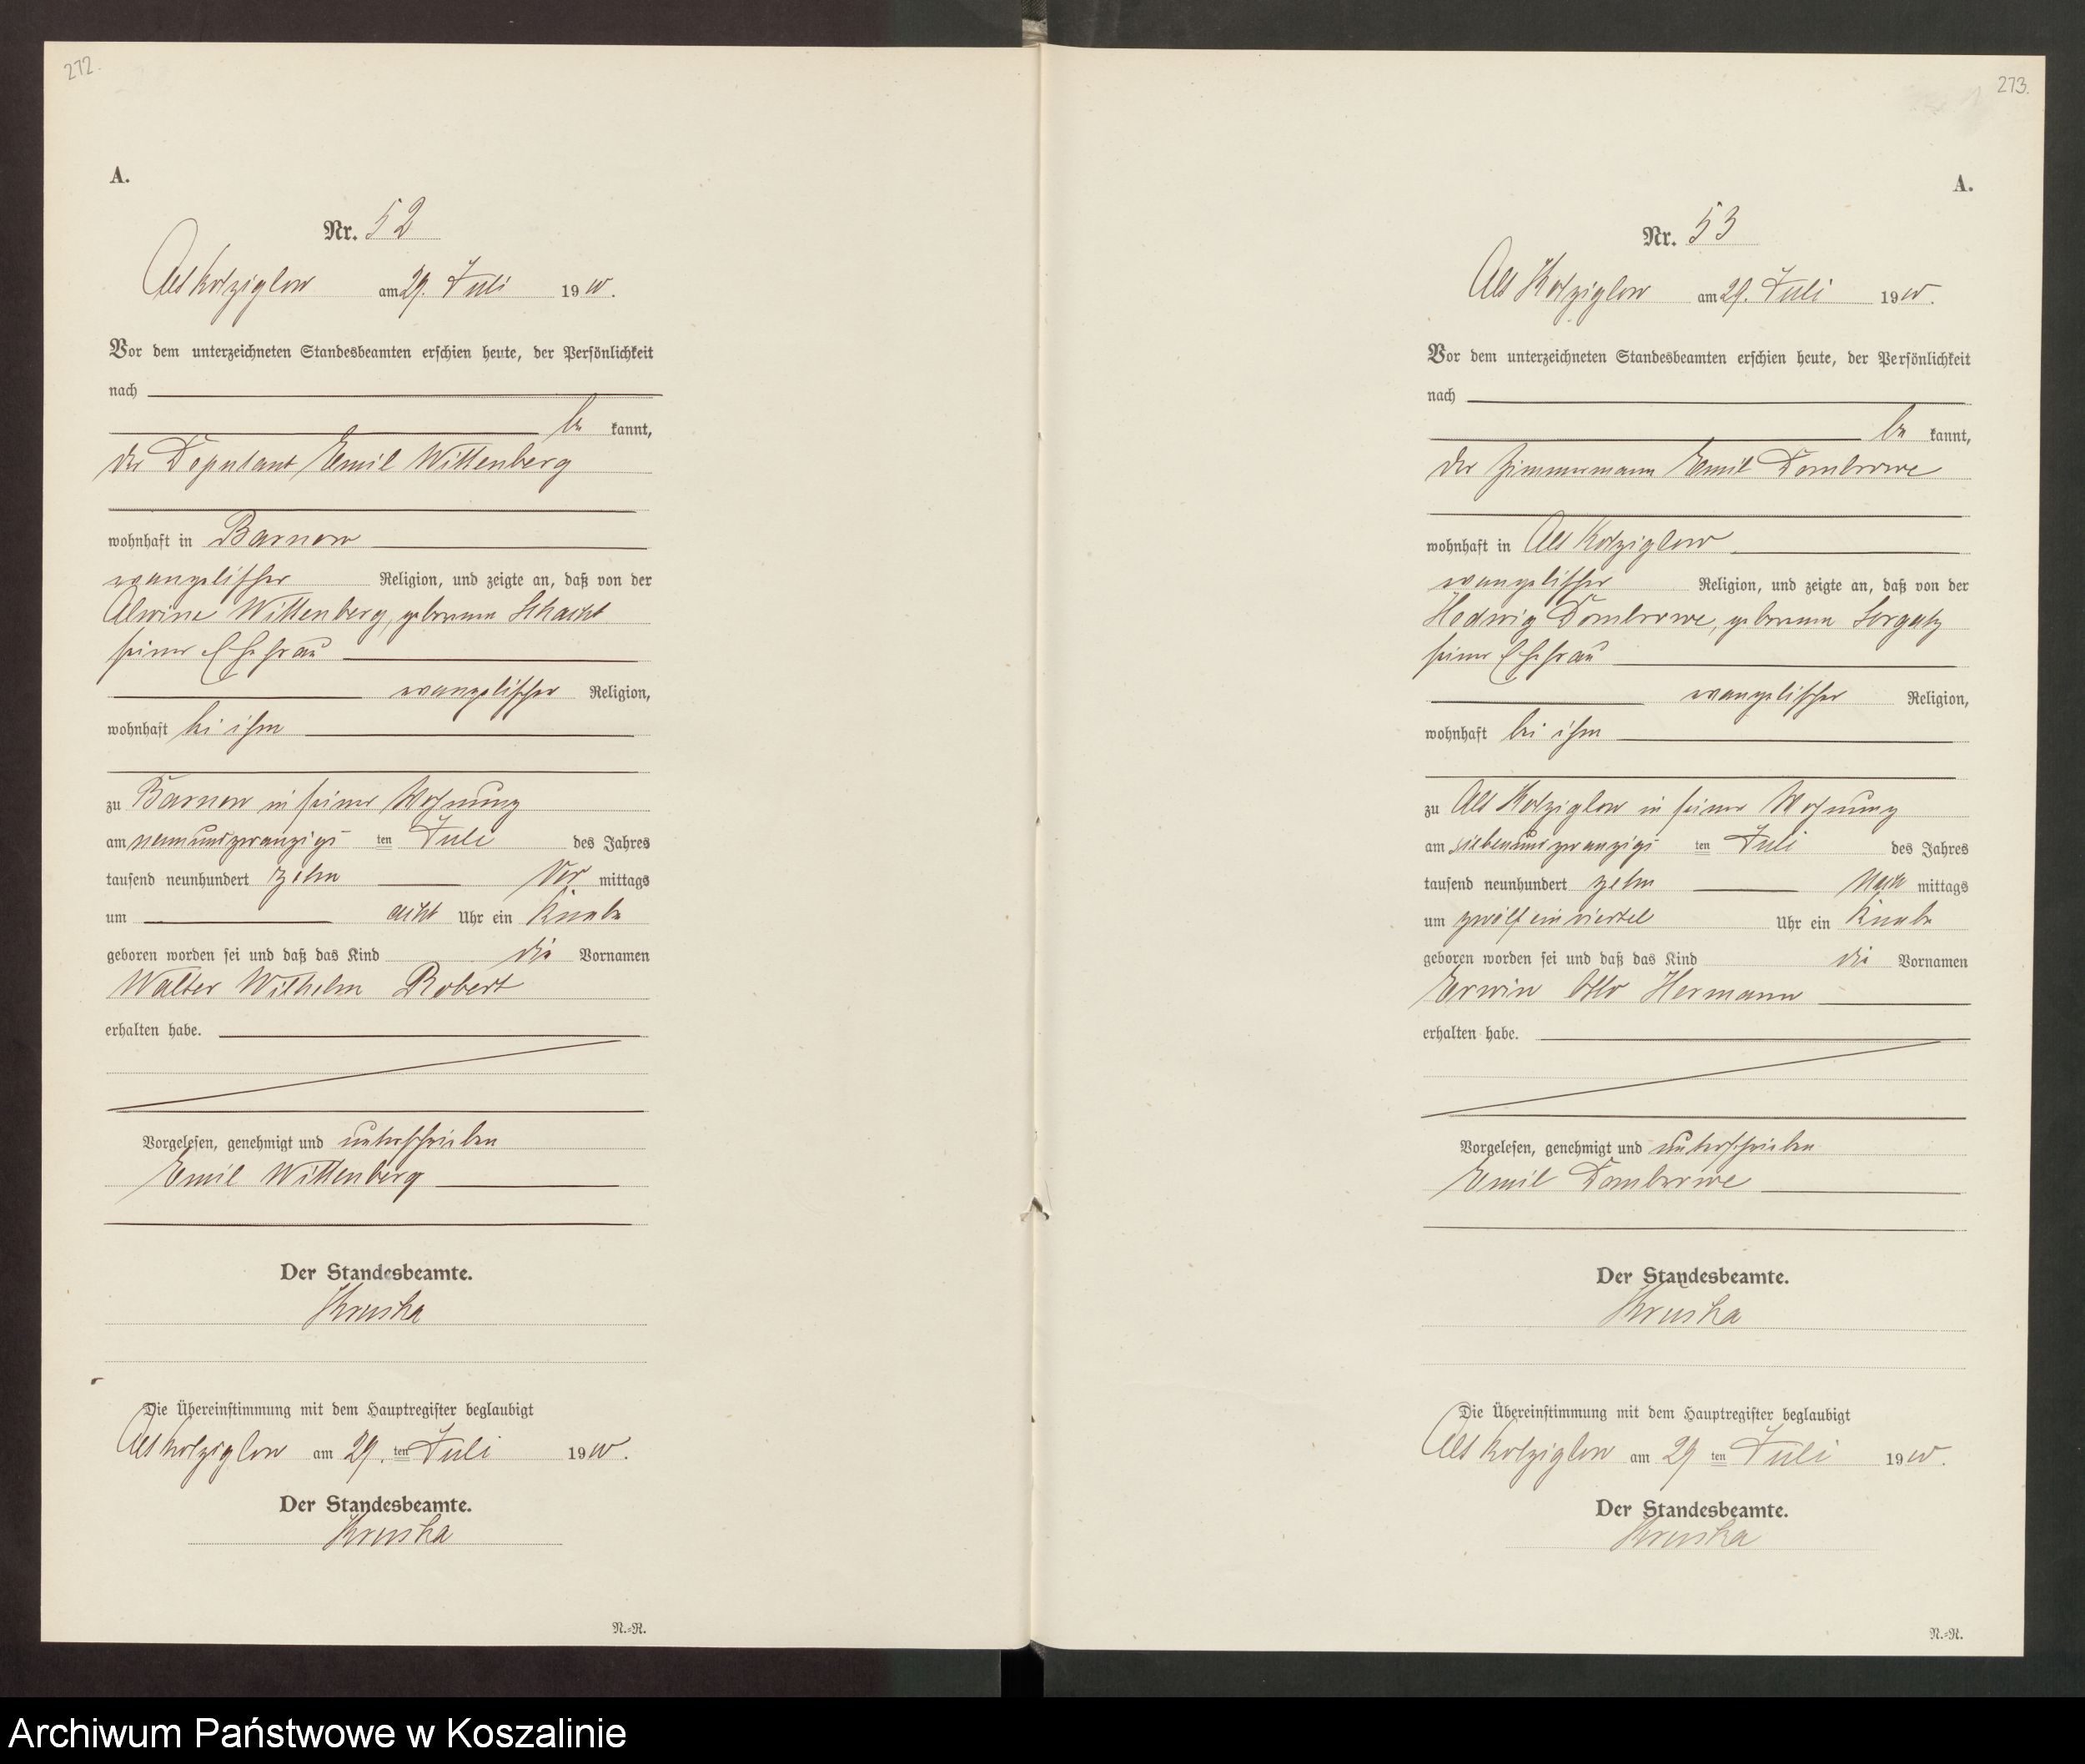 272.
A.
Nr. 52
Alt Kolziglow am 29. Juli 1910.
Vor dem unterzeichneten Standesbeamten erschien heute, der Persönlichkeit
nach
be kannt,
der Deputant Emil Wittenberg
wohnhaft in Barnow
evangelischer Religion, und zeigte an, daß von der
Alwine Wittenberg, geborenen Schacht
seiner Ehefrau
evangelischer Religion,
wohnhaft bei ihm
zu Barnow in seiner Wohnung
am neunundzwanzigsten Juli des Jahres
tausend neunhundert zehn Vor mittags
um acht Uhr ein Knabe
geboren worden sei und daß das Kind die Vornamen
Walter Wilhelm Robert
erhalten habe.
Vorgelesen, genehmigt und unterschrieben
Emil Wittenberg
Der Standesbeamte.
Kruska
Die Übereinstimmung mit dem Hauptregister beglaubigt
Alt Kolziglow am 29. ten Juli 1910.
Der Standesbeamte.
Kruska
N.-R.
273.
A.
Nr. 53
Alt Kolziglow am 29. Juli 1910.
Vor dem unterzeichneten Standesbeamten erschien heute, der Persönlichkeit
nach
be kannt,
der Zimmermann Emil Dombrowe
wohnhaft in Alt Kolziglow
evangelischer Religion, und zeigte an, daß von der
Hedwig Dombrowe, geborenen Sergatz
seiner Ehefrau
evangelischer Religion,
wohnhaft bei ihm
zu Alt Kolziglow in seiner Wohnung
am siebenundzwanzigsten Juli des Jahres
tausend neunhundert zehn Nach mittags
um zwölf einviertel Uhr ein Knabe
geboren worden sei und daß das Kind die Vornamen
Erwin Otto Hermann
erhalten habe.
Vorgelesen, genehmigt und unterschrieben
Emil Dombrowe
Der Standesbeamte.
Kruska
Die Übereinstimmung mit dem Hauptregister beglaubigt
Alt Kolziglow am 29 ten Juli 1910.
Der Standesbeamte.
Kruska
N.-R.
Archiwum Państwowe w Koszalinie